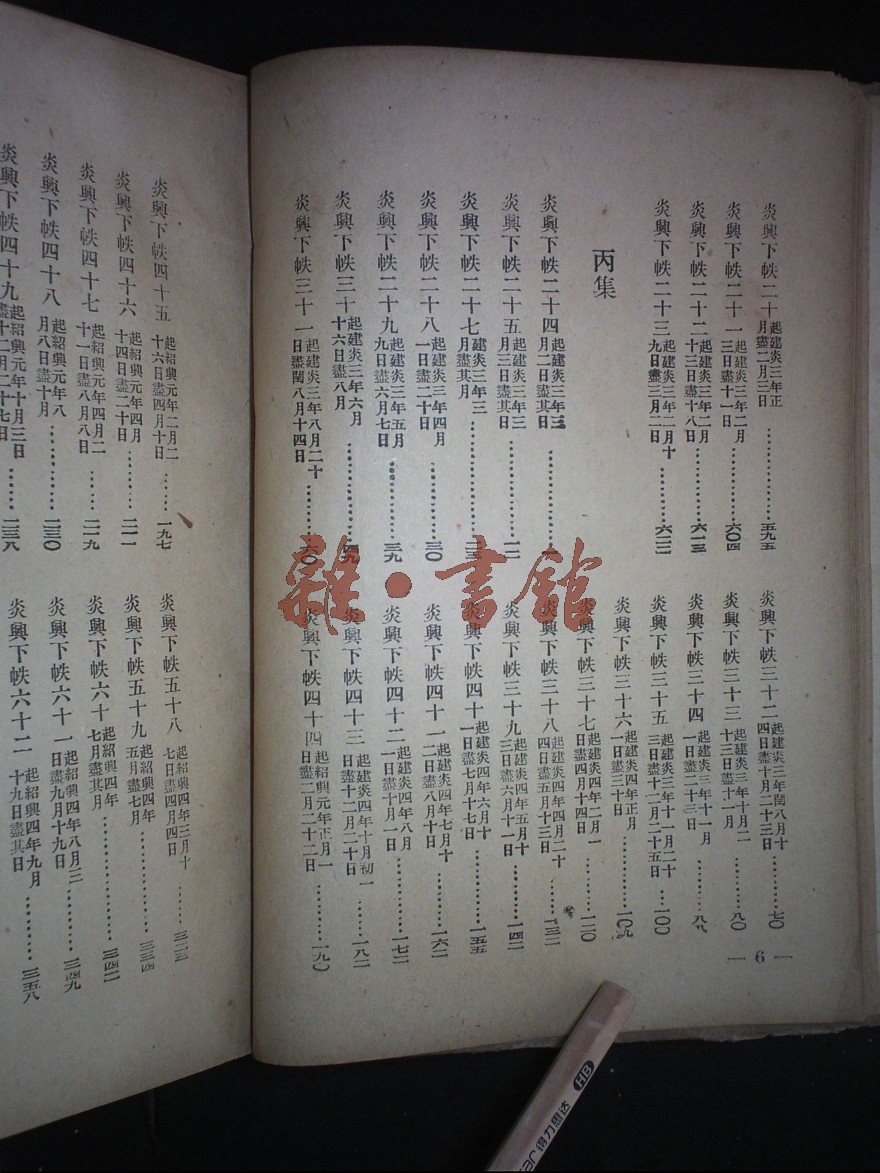 炎興下帙二十 起建炎三年正月盡二月三日 五九五
炎興下帙二十一 起建炎三年二月三日盡十一日 六〇四
炎興下帙二十二 起建炎三年二月十三日盡十八日 六一三
炎興下帙二十三 起建炎三年二月十九日盡三月二日 六二二
丙集
炎興下帙二十四 起建炎三年三月二日盡其日 一
炎興下帙二十五 起建炎三年三月三日盡其日 一二
炎興下帙二十七 建炎三年三月盡其月 二三
炎興下帙二十八 起建炎三年四月一日盡二十日 三〇
炎興下帙二十九 起建炎三年五月九日盡六月七日 三九
炎興下帙三十 起建炎三年六月十六日盡八月
炎興下帙三十一 起建炎三年八月二十日盡閏八月十四日 六〇
炎興下帙三十二 起建炎三年閏八月十四日盡十月二十三日 七〇
炎興下帙三十三 起建炎三年十月二十三日盡十一月 八〇
炎興下帙三十四 起建炎三年十一月一日盡二十三日
炎興下帙三十五 起建炎三年十一月二十三日盡十二月二十五日 一〇〇
炎興下帙三十六 起建炎四年正月一日盡三十日 一〇九
炎興下帙三十七 起建炎四年二月一日盡四月十四日 一二〇
炎興下帙三十八 起建炎四年四月二十四日盡五月十三日 一三二
炎興下帙三十九 起建炎四年五月十三日盡六月十一日 一四二
炎興下帙四十 起建炎四年六月十一日盡七月十七日 一五五
炎興下帙四十一 起建炎四年七月十二日盡八月十日 一六二
炎興下帙四十二 起建炎四年八月一日盡十月一日 一七二
炎興下帙四十三 起建炎四年十月初一日盡十二月二十日 一八二
炎興下帙四十四 起紹興元年正月一日盡二月二十二日 一九〇
— 6 —
炎興下帙四十五 起紹興元年二月二十六日盡四月十日 一九七
炎興下帙四十六 起紹興元年四月十四日盡二十日 二一一
炎興下帙四十七 起紹興元年四月二十一日盡八月八日 二一九
炎興下帙四十八 起紹興元年八月八日盡十月 二三〇
炎興下帙四十九 起紹興元年十月三日盡十二月二十七日 二三八
炎興下帙五十八 起紹興四年三月十七日盡四月四日 三二三
炎興下帙五十九 起紹興四年五月盡七月 三三四
炎興下帙六十 起紹興四年七月盡其月 三四二
炎興下帙六十一 起紹興四年八月三日盡九月十九日 三四九
炎興下帙六十二 起紹興四年九月十九日盡其日 三五八
雜·書館
HB
得力思达